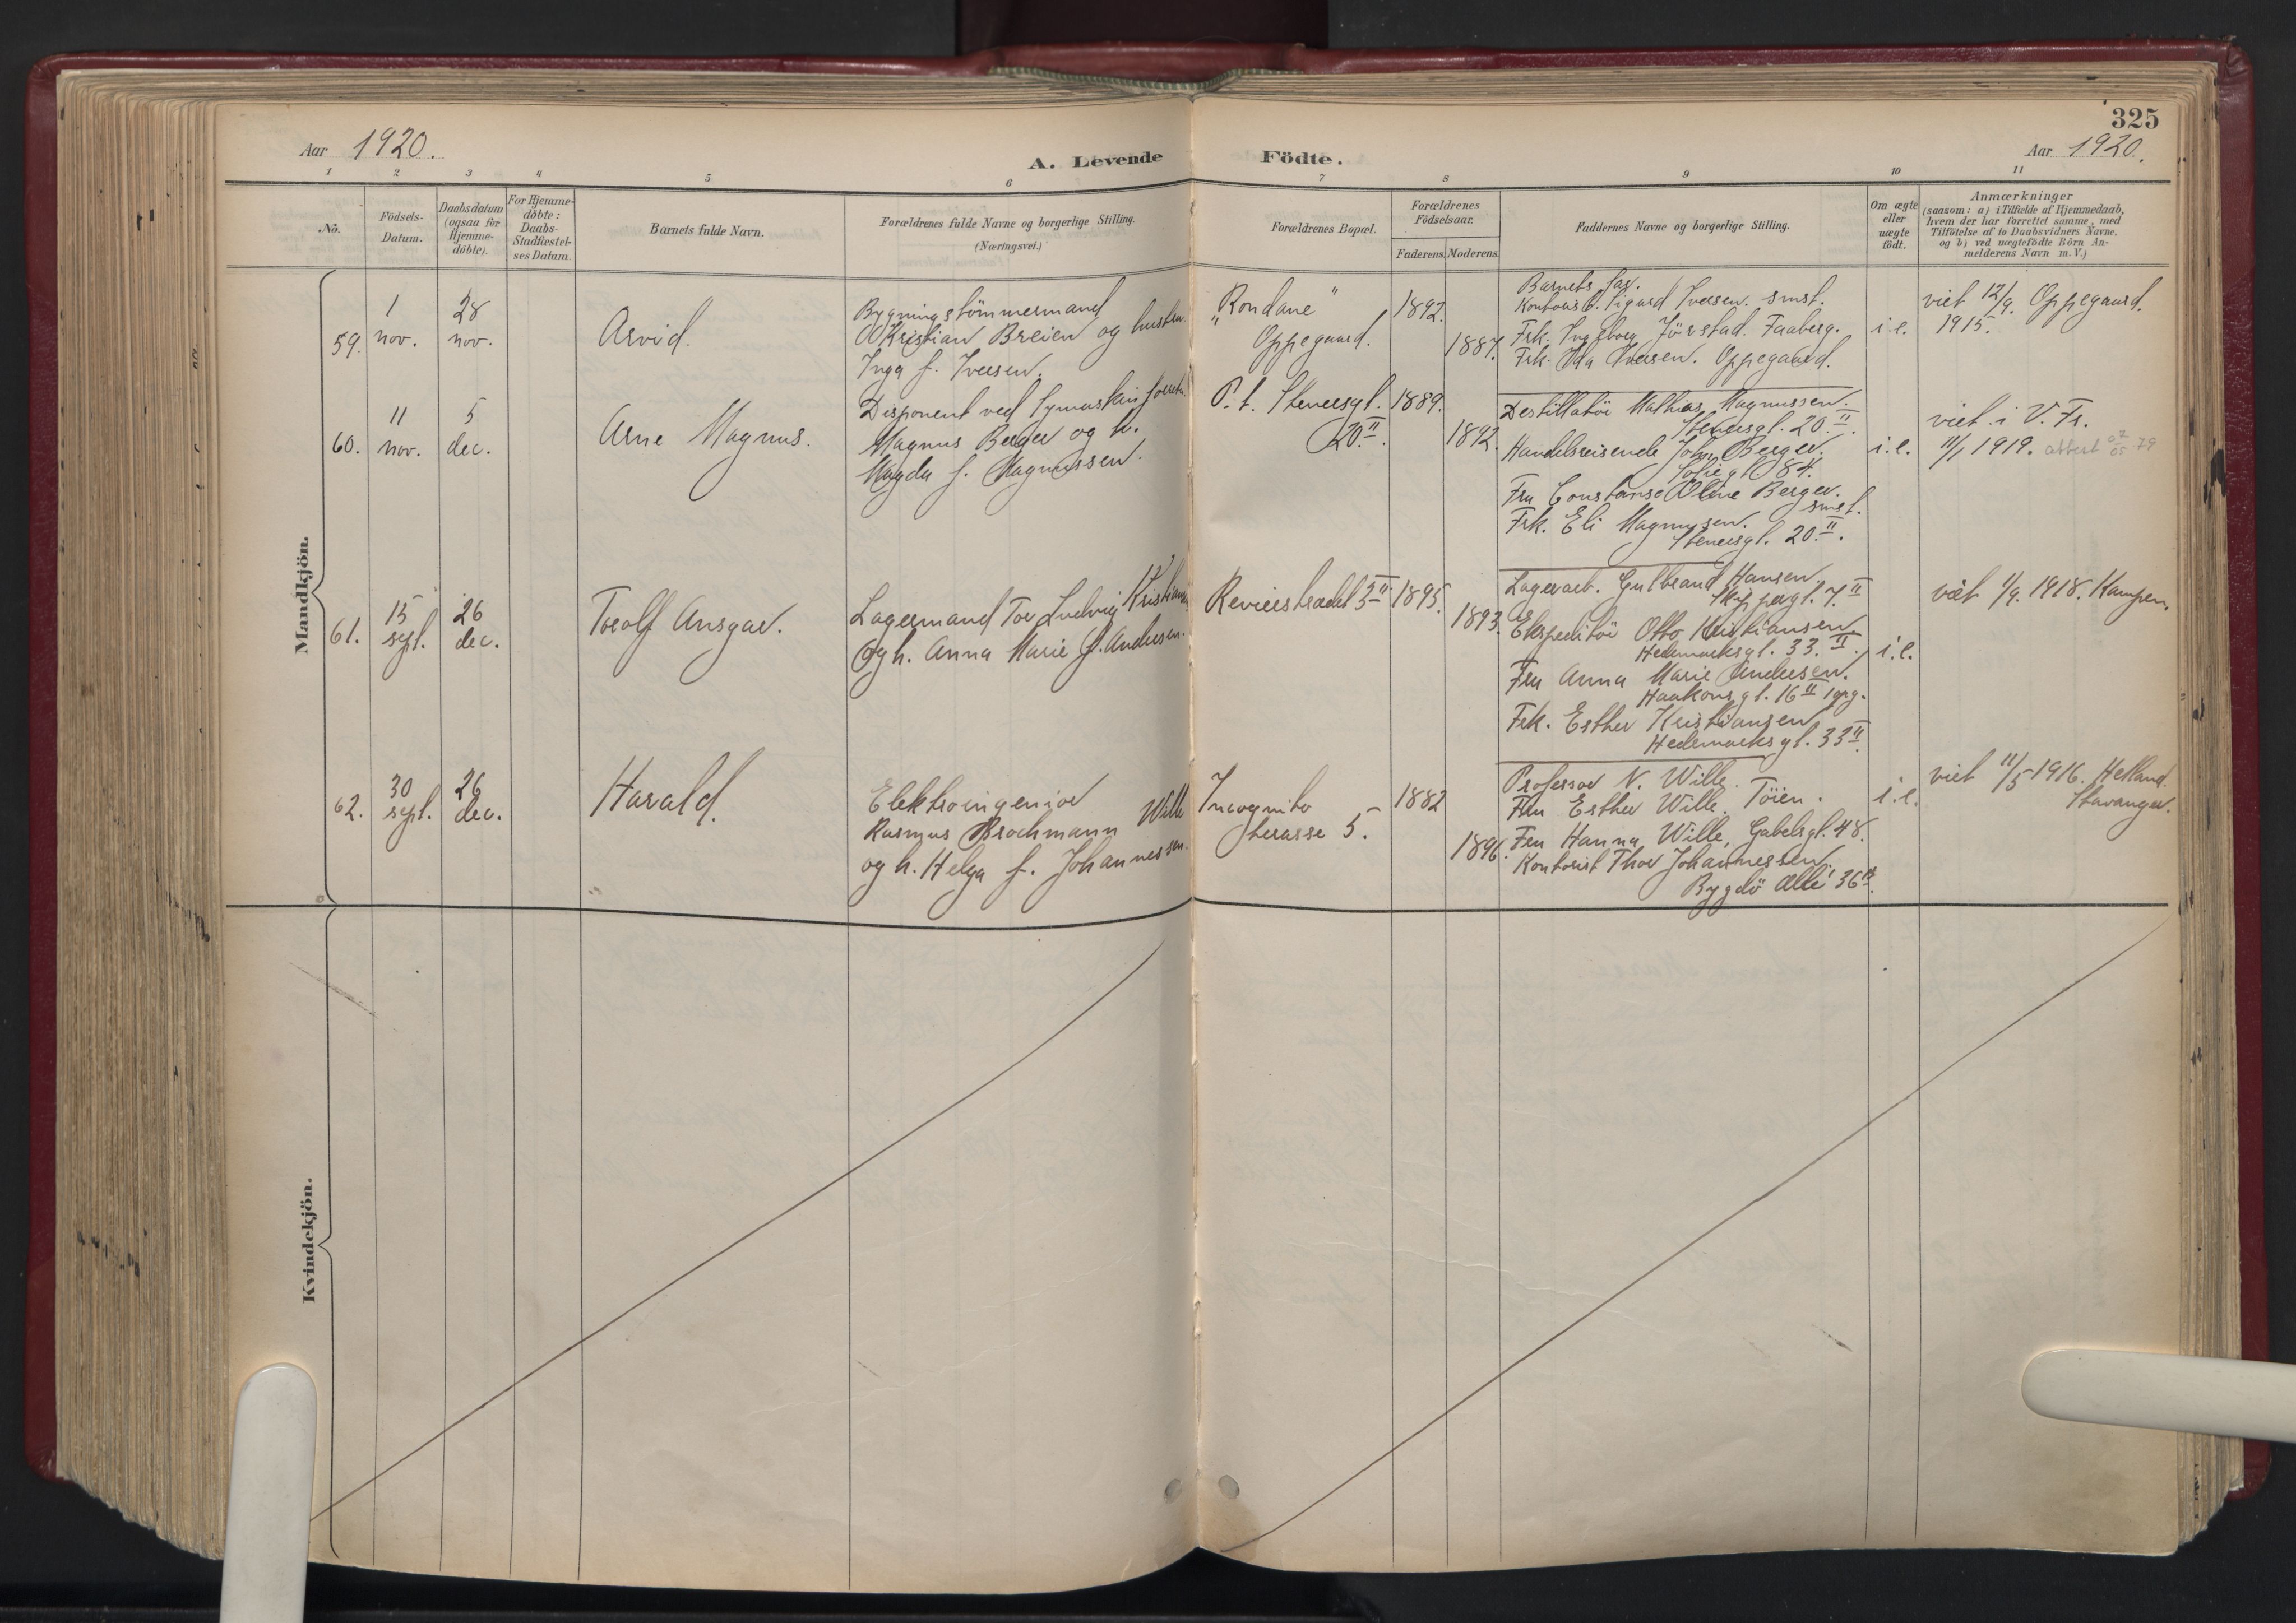 325
Aar 1920.
A. Levende Födte.
Aar 1920.
1 2 3 4 5 6 7 8 9 10 11
No.
Födsels-
Datum.
Daabsdatum
(ogsaa for
Hjemme-
döbte).
For Hjemme-
döbte:
Daabs-
Stadfæstel-
ses Datum.
Barnets fulde Navn.
Forældrenes fulde Navne og borgerlige Stilling.
(Næringsvei.)
Forældrenes Bopæl.
Forældrenes
Födselsaar.
Faderens. Moderens.
Faddernes Navne og borgerlige Stilling.
Om ægte
eller
uægte
födt.
Anmærkninger
(saasom: a) i Tilfælde af Hjemmedaab,
hvem der har forrettet samme, med
Tilföielse af to Daabsvidners Navne.
og b) ved uægtefödte Börn An-
melderens Navn m. V.)
Mandkjön.
59.
1
nov.
28
nov.
Arvid.
Bygningstömmermand
Kristian Breien og hustru
Inga f. Iversen.
"Rondane"
Oppegaard.
1892.
1887.
Barnets far.
Kontorist. Sigurd Iversen. smst.
Frk. Ingeborg Jörstad. Faaberg.
Frk. Ida Iversen. Oppegaard.
i.e.
viet 12/9 Oppegaard.
1915.
60.
11
nov.
5
dec.
Arne Magnus.
Disponent ved Symaskin forretn.
Magnus Berger og h.
Magda f. Magnussen.
P. t. Stenersgt.
20 II.
1889.
1892.
Destillatör Mathias Magnussen.
Stenersgt. 20. II.
Handelsreisende John Berger.
Sofiegt. 84.
Fru Constanse Oline Berger.
smst.
Frk. Eli Magnussen.
Stenersgt. 20. II.
i.e.
viet i V. Fr.
11/1 1919. attest 79
61.
15
sept.
26
dec.
Torolf Ansgar.
Lagermand Tor Ludvig Kristiansen
og h. Anna Marie f. Andersen.
Revierstrædet 3 II
1895.
1893.
Lagerarb. Gulbrand Hansen.
Skippergt. 7. II
Ekspeditör Otto Kristiansen
Hedemarksgt. 33. II.
Fru Anna Marie Andersen.
Haakonsgt. 16 II opg.
Frk. Esther Kristiansen
Hedemarksgt. 33 II.
i.e.
viet 1/9. 1918. Kampen.
62.
30
sept.
26
dec.
Harald.
Elektroingeniör
Rasmus Brochmann Wille
og h. Helga f. Johannessen.
Incognito
terasse 5.
1882
1896.
Professor N. Wille.
Fru Esther Wille. Töien.
Fru Hanna Wille, Gabelsgt. 48.
Kontorist Thor Johannessen.
Bygdö Allé 36 II.
i.e.
viet 11/5 1916. Hetland.
Stavanger.
Kvindekjön.